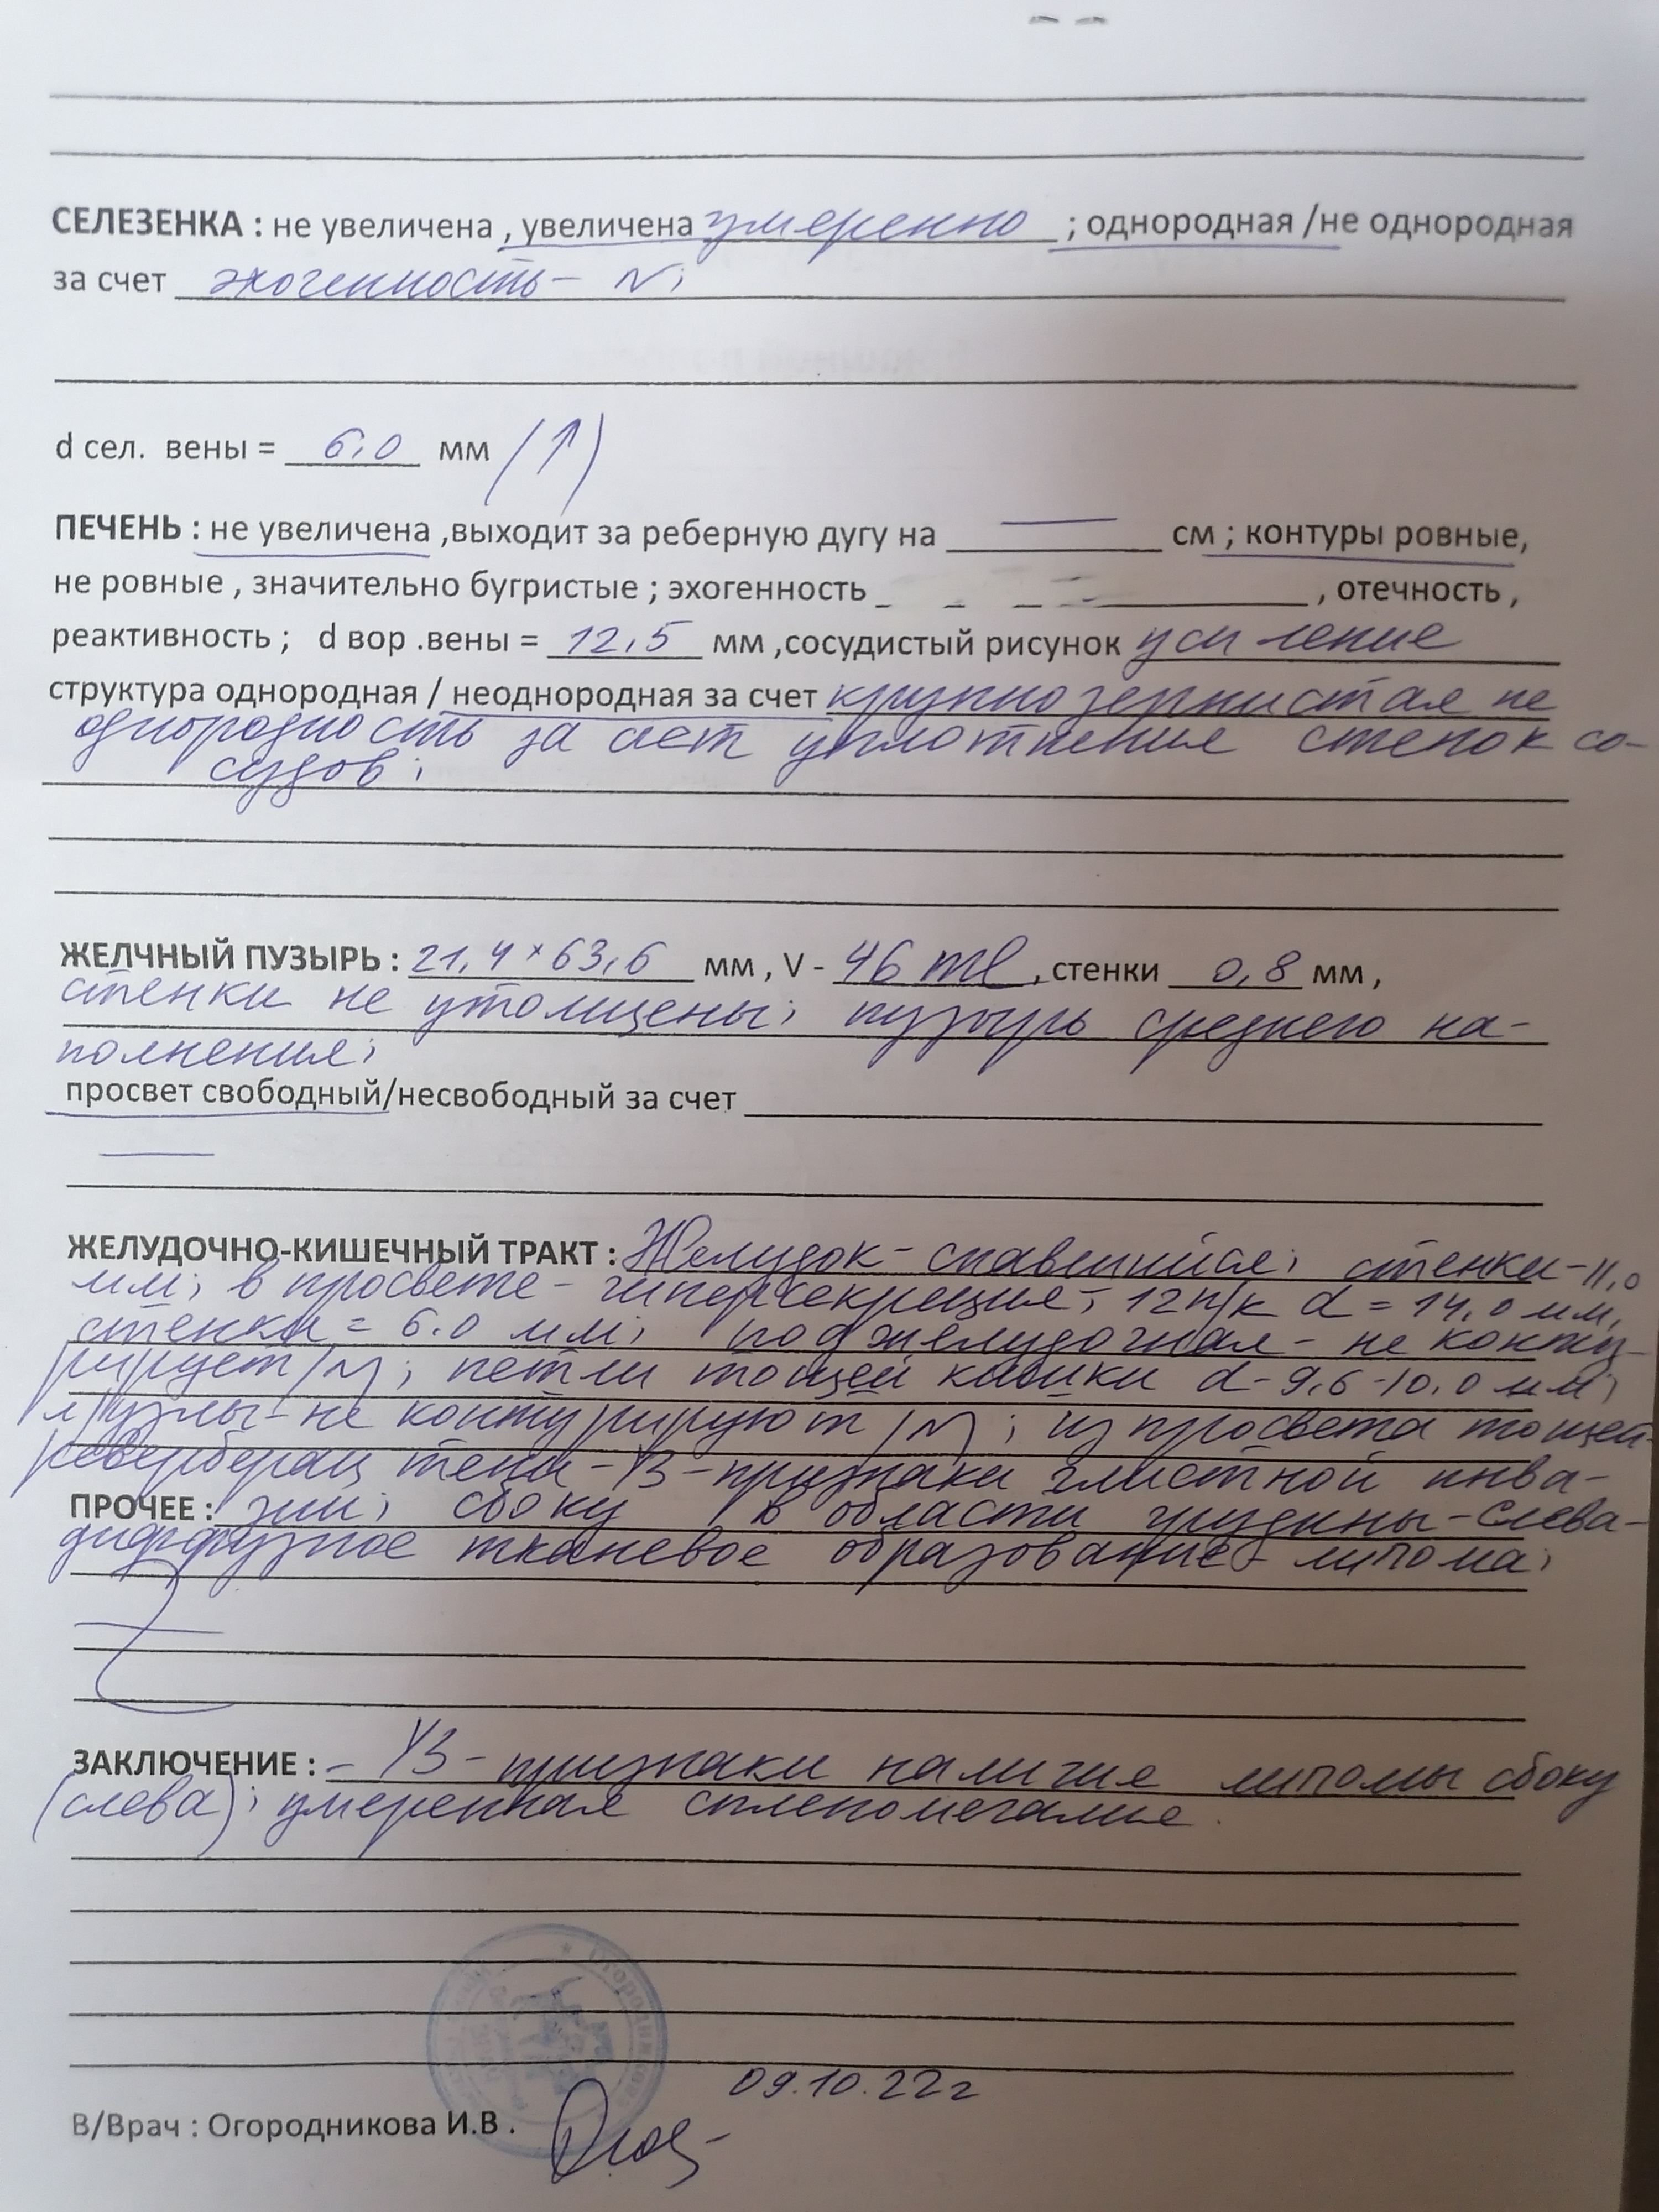 СЕЛЕЗЕНКА : не увеличена , увеличена умеренно ; однородная /не однородная
за счет эхогенность – N;
d сел. вены = 6,0 мм (↑)
ПЕЧЕНЬ : не увеличена ,выходит за реберную дугу на — см ; контуры ровные,
не ровные , значительно бугристые ; эхогенность , отечность ,
реактивность ; d вор .вены = 12,5 мм ,сосудистый рисунок усиление
структура однородная / неоднородная за счет крупнозернистая не
однородность за счет уплотнения стенок со-
судов;
ЖЕЛЧНЫЙ ПУЗЫРЬ : 21,4 × 63,6 мм , V - 46 ml , стенки 0,8 мм ,
стенки не утолщены; пузырь среднего на-
полнения;
просвет свободный/несвободный за счет
—
ЖЕЛУДОЧНО-КИШЕЧНЫЙ ТРАКТ : Желудок – спавшийся; стенки – 11,0
мм; в просвете – гиперсекреция; 12п/к d = 14,0 мм,
стенки = 6.0 мм; поджелудочная – не конту-
рирует /N/; петли тощей кишки d – 9,6 -10,0 мм;
л/узлы – не контурируют /N/; из просвета тощей
ревербрац тени – УЗ – признаки глистной инва-
ПРОЧЕЕ : зии; сбоку в области грудины – слева –
диффузное тканевое образование – липома;
ЗАКЛЮЧЕНИЕ : – УЗ – признаки наличия липомы сбоку
(слева); умеренная спленомегалия.
09.10.22г
В/Врач : Огородникова И.В .